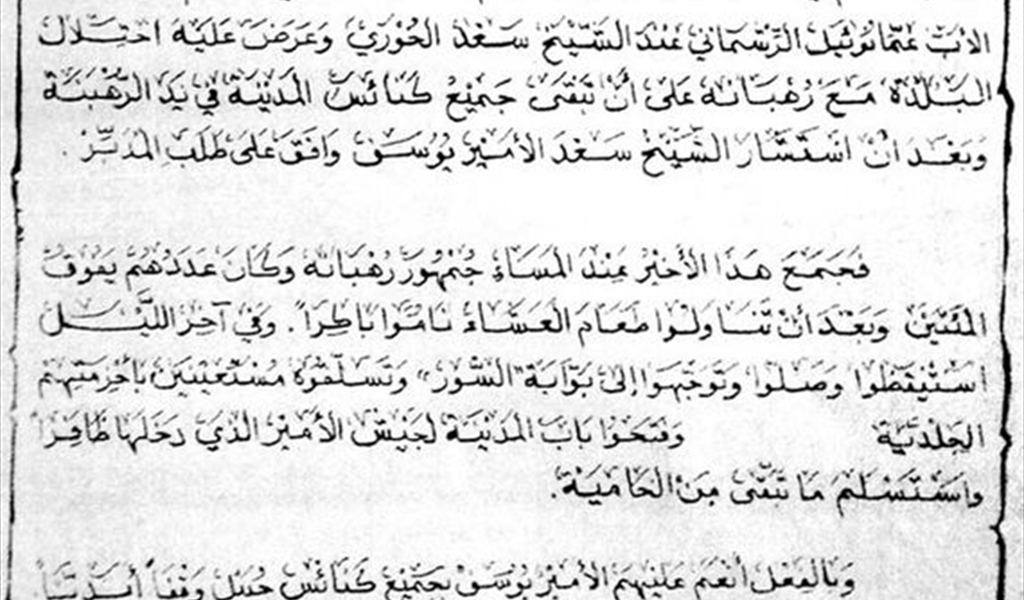 الاب عمانوئيل الرشماني عند الشيخ سعد الخوري وعرض عليه احتلال
البلدة مع رهبانه على أن تبقى جميع كنائس المدينة في يد الرهبنة
وبعد ان استشار الشيخ سعد الأمير يوسف وافق على طلب المدبّر.
فجمع هذا الأخير عند المساء جمهور رهبانه وكان عددهم يفوق
المئتين وبعد أن تناولوا طعام العشاء ناموا باكراً. وفي آخر الليل
استيقظوا وصلوا وتوجهوا إلى بوّابة "السور" وتسلّقوه مستعينين بأحزمتهم
الجلديّة وفتحوا باب المدينة لجيش الأمير الذي دخلها ظافراً
واستسلم ما تبقّى من الحامية.
وبالفعل أنعم عليهم الأمير يوسف بجميع كنائس جبيل وقفاً أبديّاً.